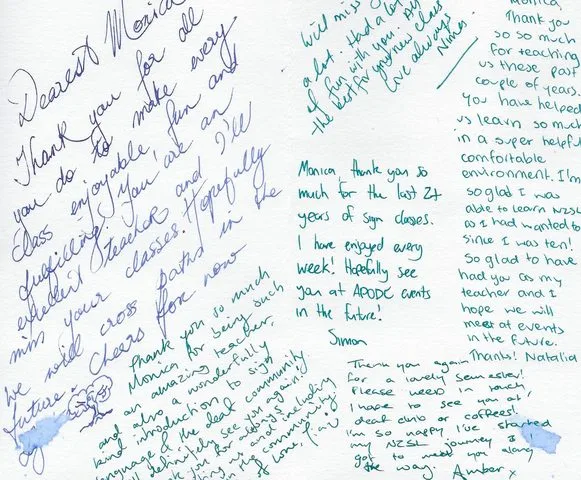 Dearest Monica
Thank you for all
you do to make every
class enjoyable, fun and
fulfilling. You are an
excellent teacher and I'll
miss your classes. Hopefully
we will cross paths in the
future. Cheers for now
Will miss
a lot. Had a lot
of fun with you. All
the best for your new class
Live always
Nimas
Monica,
Thank you
so so much
for teaching
us these past
couple of years.
You have helped
us learn so much
in a super helpful
comfortable
environment. I'm
so glad I was
able to learn NZSL
as I had wanted to
since I was ten!
So glad to have
had you as my
teacher and I
hope we will
meet at events
in the future.
Thanks! Natalia
Monica, thank you so
much for the last 2+
years of sign classes.
I have enjoyed every
week! Hopefully see
you at APODC events
in the future!
Simon
Thank you so much
Monica for being such
an amazing teacher,
and also a wonderfully
kind introduction to sign
language & the deaf community
will definitely see you again!
thank you for always
us and including
in the community
of love,
Thank you again
for a lovely semester!
Please keep in touch,
I hope to see you at
deaf club or coffees!
I'm so happy I've started
my NZSL journey &
got to meet you along
the way. Amber x